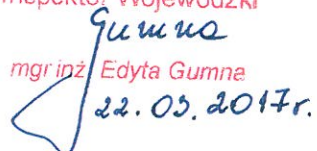 Inspektor Wojewódzki
Gumna
mgr inż. Edyta Gumna
22.03.2017r.